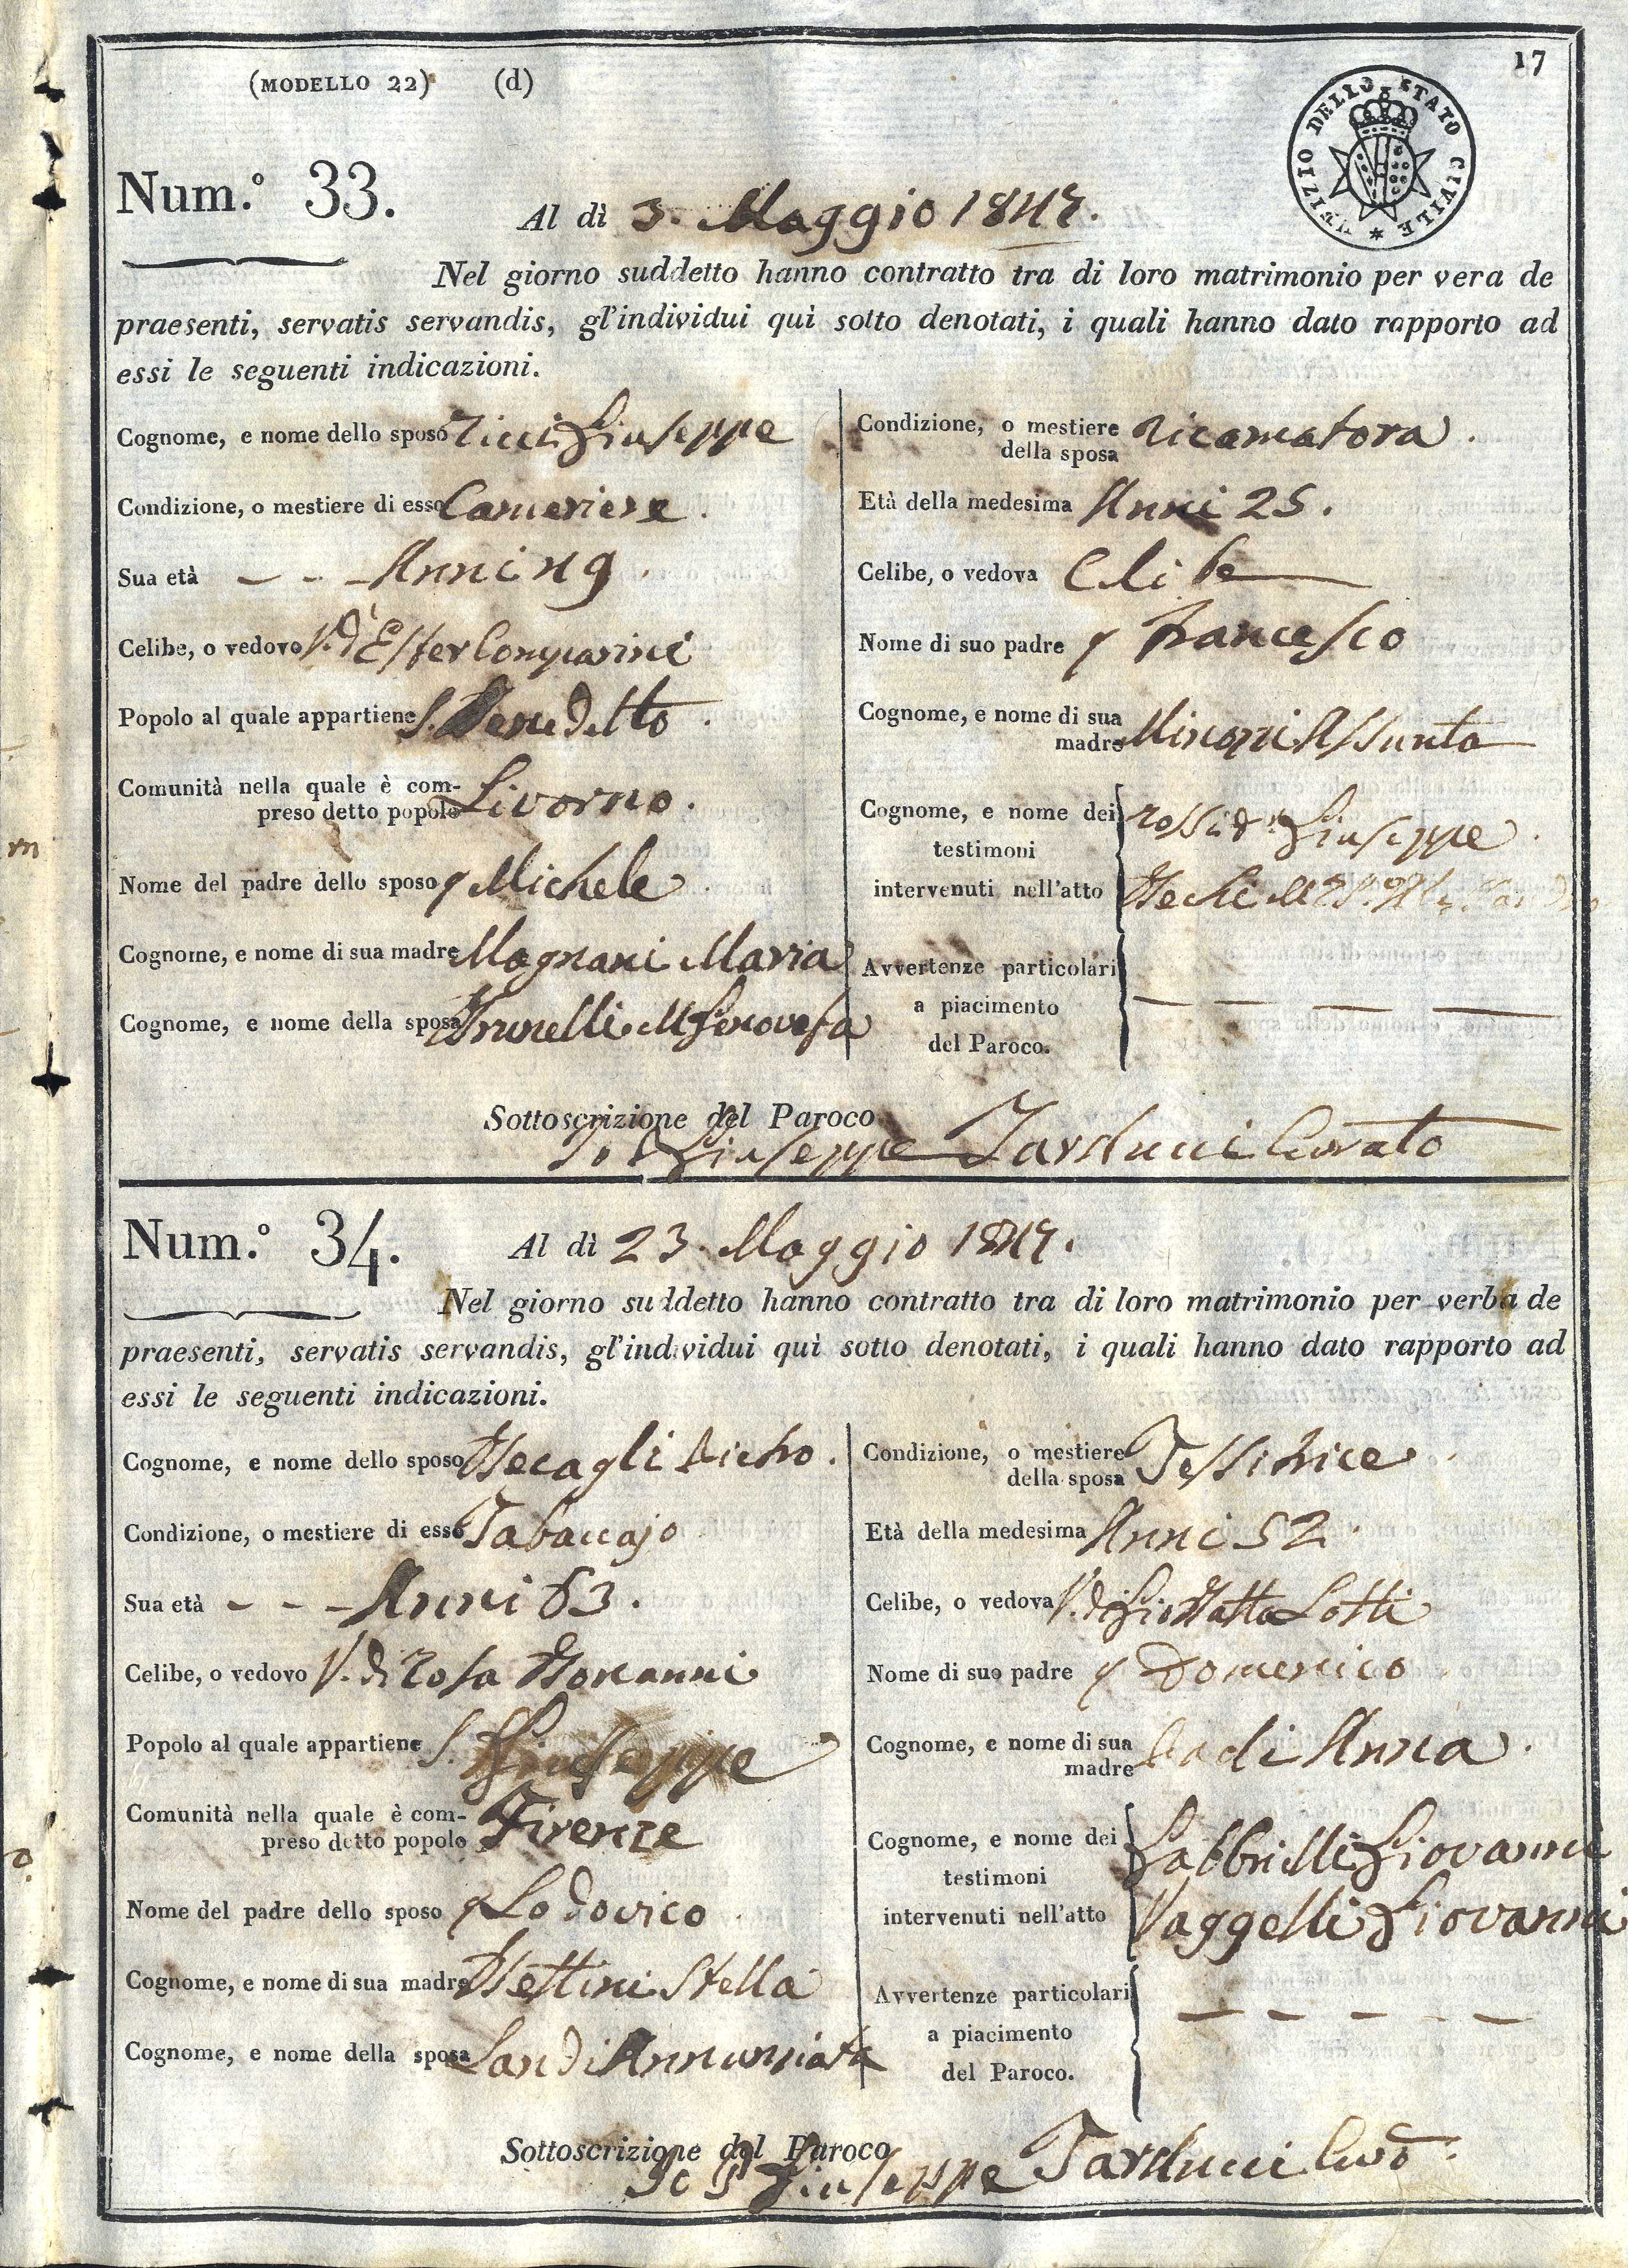 17
(MODELLO 22) (d)
UFIZIO DELLO STATO CIVILE
Num.º 33.
Al dì 3. Maggio 1847.
Nel giorno suddetto hanno contratto tra di loro matrimonio per vera de
praesenti, servatis servandis, gl'individui quì sotto denotati, i quali hanno dato rapporto ad
essi le seguenti indicazioni.
Cognome, e nome dello sposo Ricci Giuseppe
Condizione, o mestiere di esso Cameriere.
Sua età - - - Anni 49.
Celibe, o vedovo V. d'Ester
Popolo al quale appartiene S. Benedetto.
Comunità nella quale è com-
preso detto popolo Livorno.
Nome del padre dello sposo q Michele.
Cognome, e nome di sua madre Magnani Maria
Cognome, e nome della sposa Brunelli Mª Genovefa
Condizione, o mestiere
della sposa Ricamatora.
Età della medesima Anni 25.
Celibe, o vedova Celibe
Nome di suo padre q Francesco
Cognome, e nome di sua
madre Assunta
Cognome, e nome dei
testimoni
intervenuti nell'atto
Rossi Giuseppe.
Avvertenze particolari
a piacimento
del Paroco.
Sottoscrizione del Paroco
Giuseppe Tarducci Curato
Num.º 34.
Al dì 23. Maggio 1847.
Nel giorno suddetto hanno contratto tra di loro matrimonio per verba de
praesenti, servatis servandis, gl'individui quì sotto denotati, i quali hanno dato rapporto ad
essi le seguenti indicazioni.
Cognome, e nome dello sposo Becagli Pietro.
Condizione, o mestiere di esso Tabaccajo
Sua età - - - Anni 63.
Celibe, o vedovo V. di Rosa Bonanni
Popolo al quale appartiene S. Giuseppe
Comunità nella quale è com-
preso detto popolo Firenze
Nome del padre dello sposo q Lodovico
Cognome, e nome di sua madre Bettini Stella
Cognome, e nome della sposa Landi Annunziata
Condizione, o mestiere
della sposa Tessitrice
Età della medesima Anni 52.
Celibe, o vedova V. di Gio Batta Lotti
Nome di suo padre q Domenico
Cognome, e nome di sua
madre Anna.
Cognome, e nome dei
testimoni
intervenuti nell'atto
Gabbrielli Giovanni
Vaggelli Giovanni
Avvertenze particolari
a piacimento
del Paroco.
Sottoscrizione del Paroco
Giuseppe Tarducci Curō.